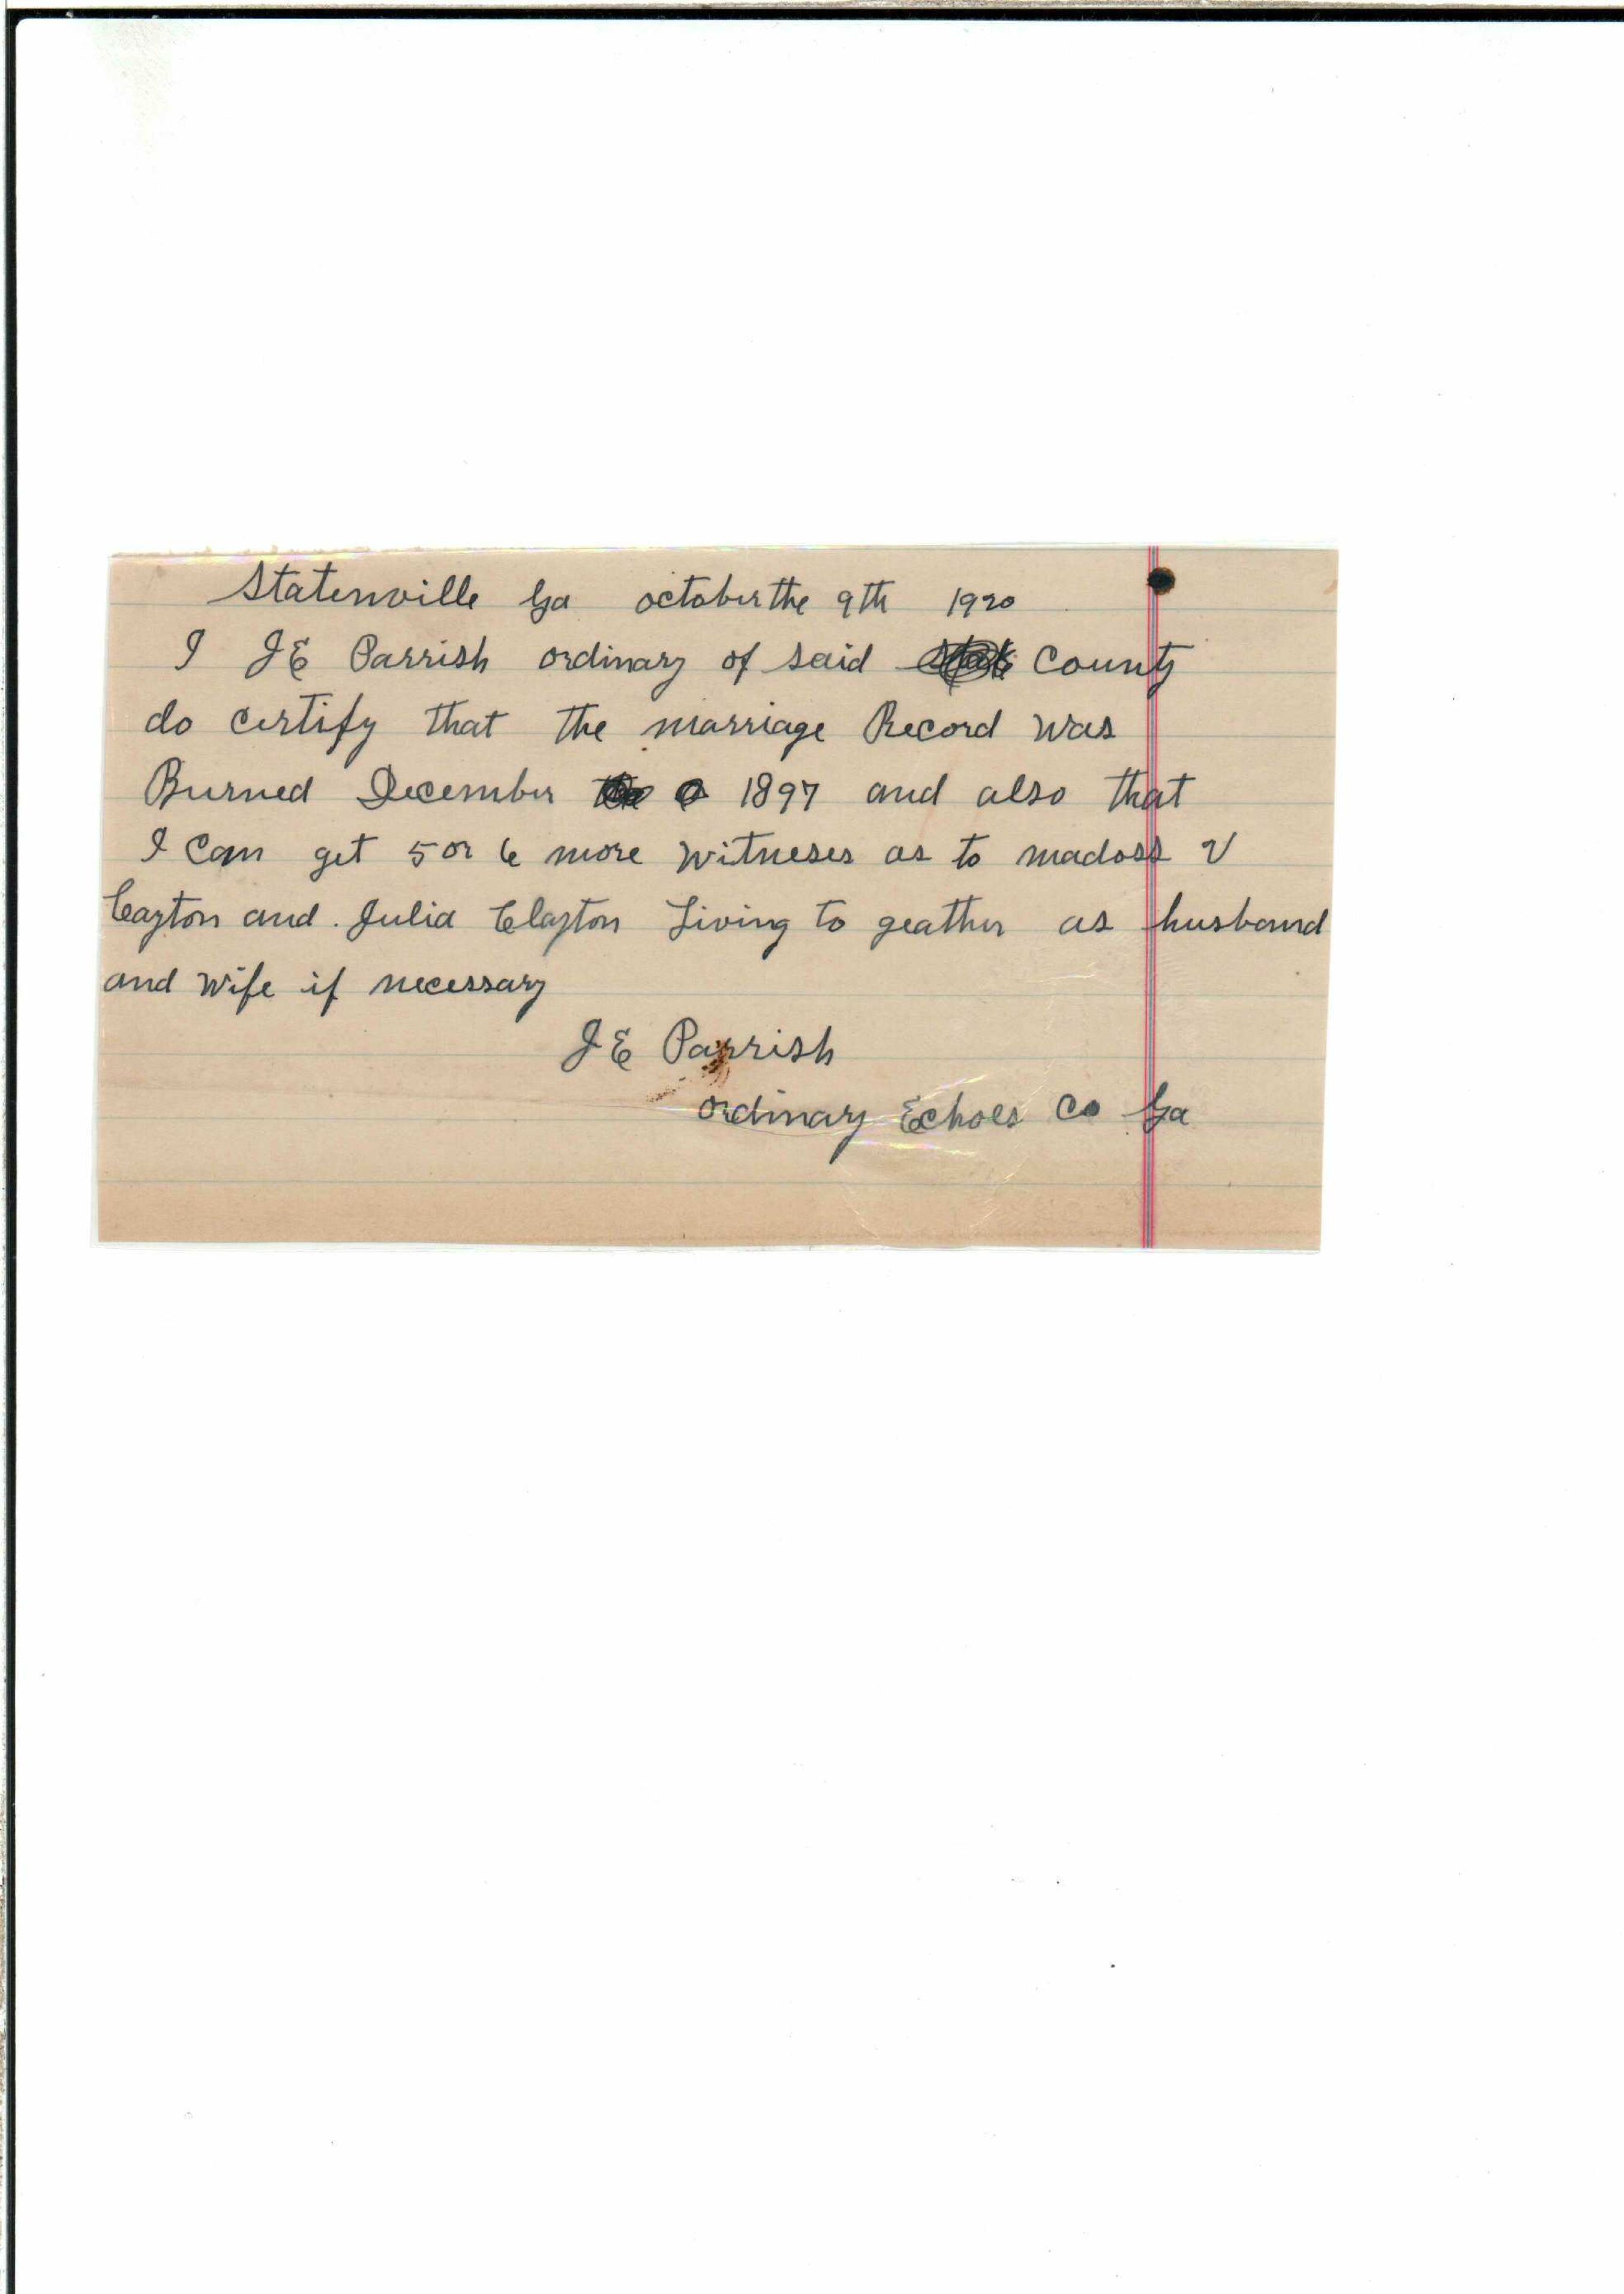 Statenville Ga october the 9th 1920
I JE Parrish ordinary of said County
do certify that the marriage Record was
Burned December 1897 and also that
I can get 5 or 6 more witneses as to madoss V
Cayton and . Julia Clayton Living to geather as husband
and wife if necessary
JE Parrish
ordinary Echols Co Ga